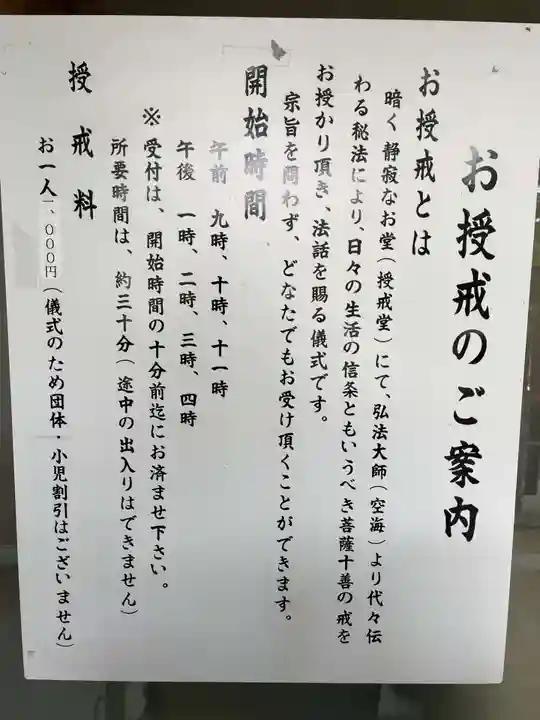 お授戒のご案内
お授戒とは
暗く静寂なお堂(授戒堂)にて、弘法大師(空海)より代々伝
わる秘法により、日々の生活の信条ともいうべき菩薩十善の戒を
お授かり頂き、法話を賜る儀式です。
宗旨を問わず、どなたでもお受け頂くことができます。
開始時間
午前 九時、十時、十一時
午後 一時、二時、三時、四時
※受付は、開始時間の十分前迄にお済ませ下さい。
所要時間は、約三十分(途中の出入りはできません)
授戒料
お一人一、〇〇〇円(儀式のため団体・小児割引はございません)